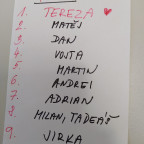 1. TEREZA ♥
2. MATĚJ
3. DAN
4. VOJTA
5. MARTIN
6. ANDREI
7. ADRIAN
8. MILAN, TADEÁŠ
9. JIRKA